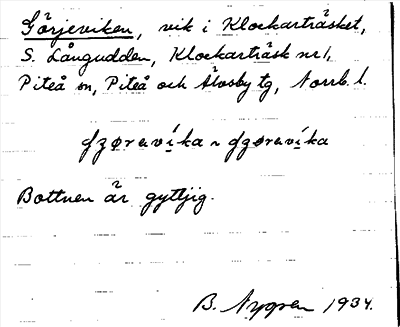 Görjeviken, vik i Klockarträsket,
S. Långudden, Klockarträsk nr 1,
Piteå sn, Piteå och Älvsby tg, Norrb. l.
Bottnen är gyttjig.
B. Nygren 1934.